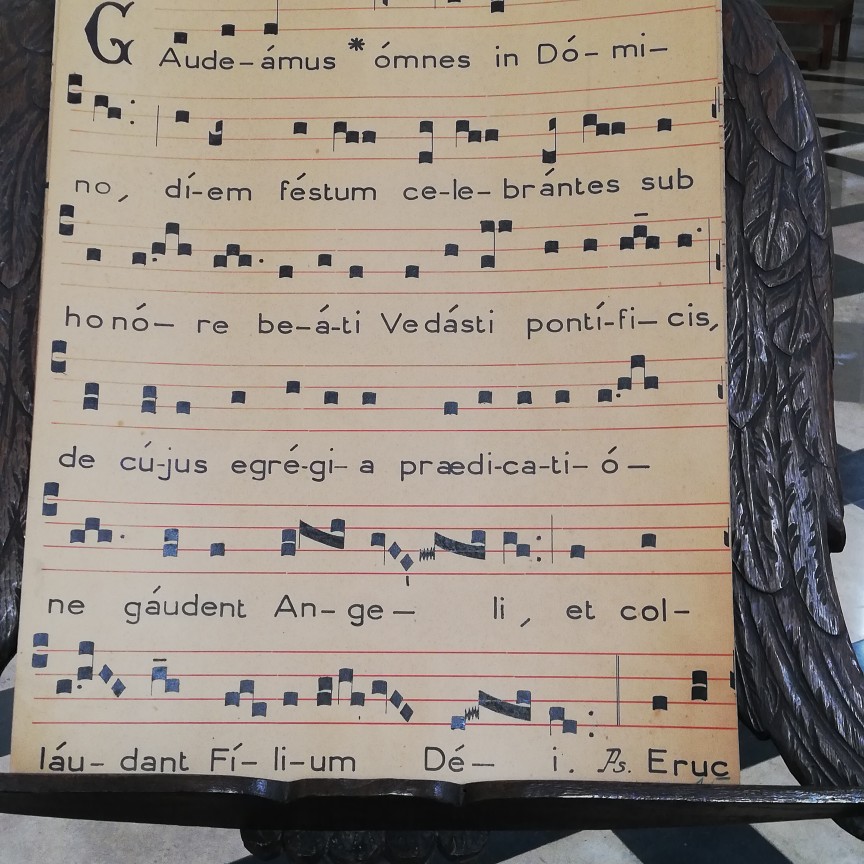 GAude-ámus * ómnes in Dó-mi-
no, dí-em féstum ce-le-brántes sub
honó- re be-á-ti Vedásti pontí-fi-cis,
de cú-jus egré-gi-a prædi-ca-ti-ó-
ne gáudent An-ge- li, et col-
láu-dant Fí-li-um Dé- i. Ps. Eruc